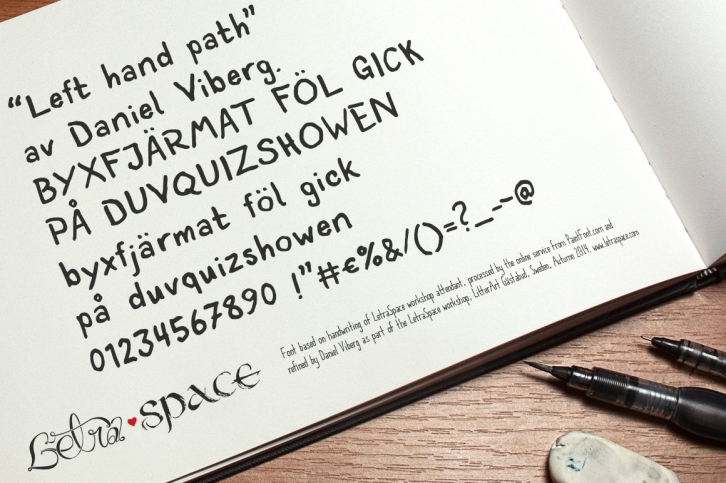 “Left hand path”
av Daniel Viberg.
BYXFJÄRMAT FÖL GICK
PÅ DUVQUIZSHOWEN
byxfjärmat föl gick
på duvquizshowen
01234567890 !”#€%&/()=?_--@
Font based on handwriting of LetraSpace workshop attendant, processed by the online service from PaintFont.com and
refined by Daniel Viberg as part of the LetraSpace workshop, LitterArt Gästabud, Sweden, Autumn 2014. www.letraspace.com
Letra♥space